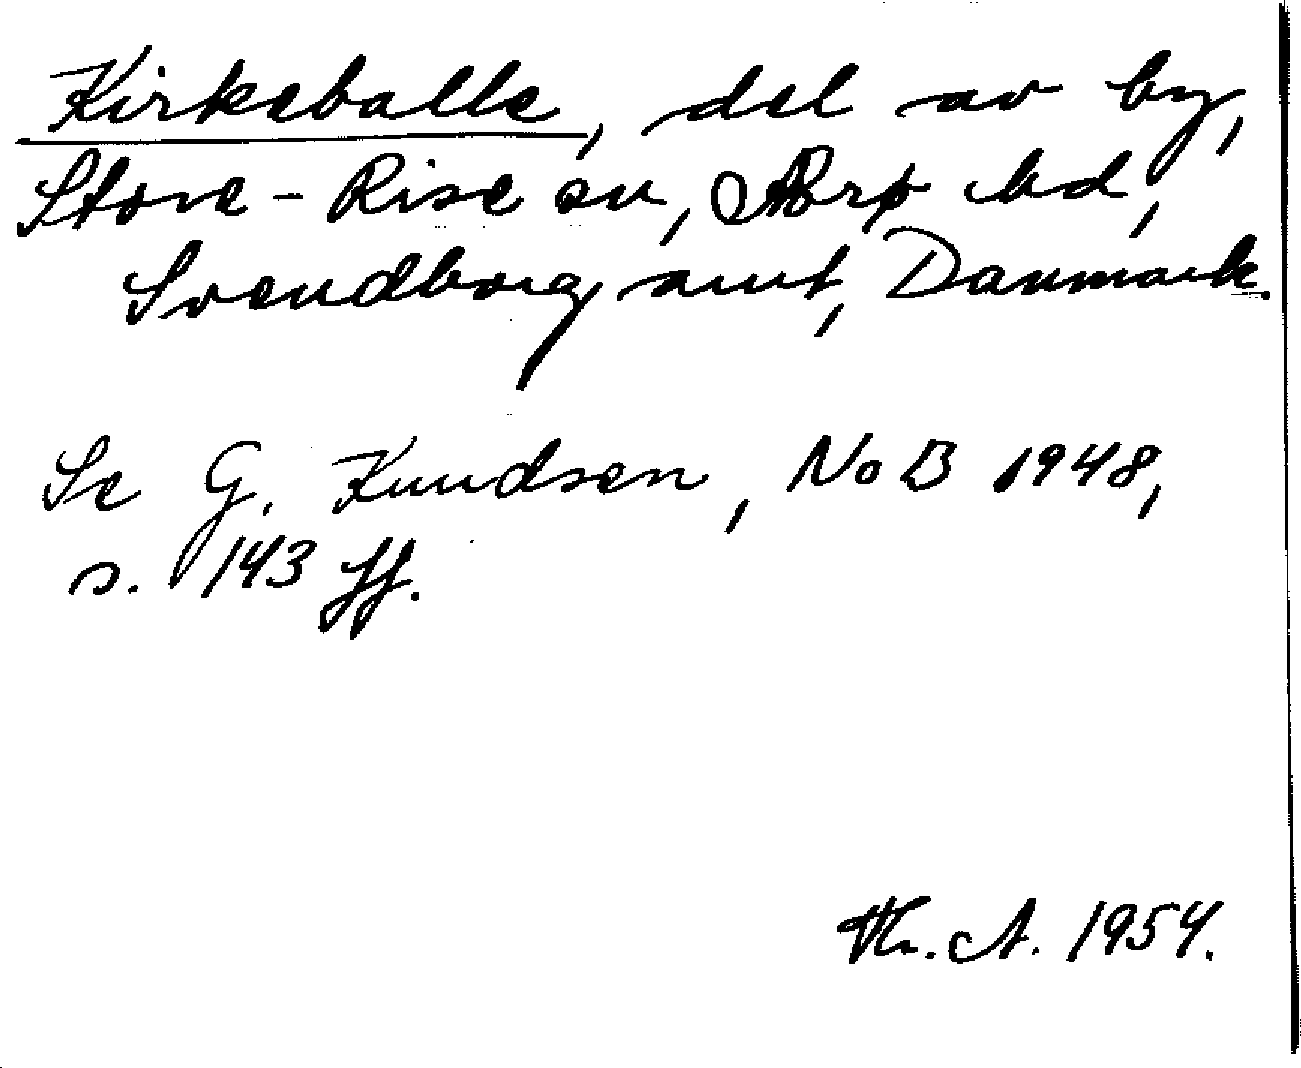 Kirkeballe, del av by,
Store-Rise sn, Ærø hd,
Svendborg amt, Danmark.
Se G. Knudsen, NoB 1948,
s. 143 ff.
A. 1954.